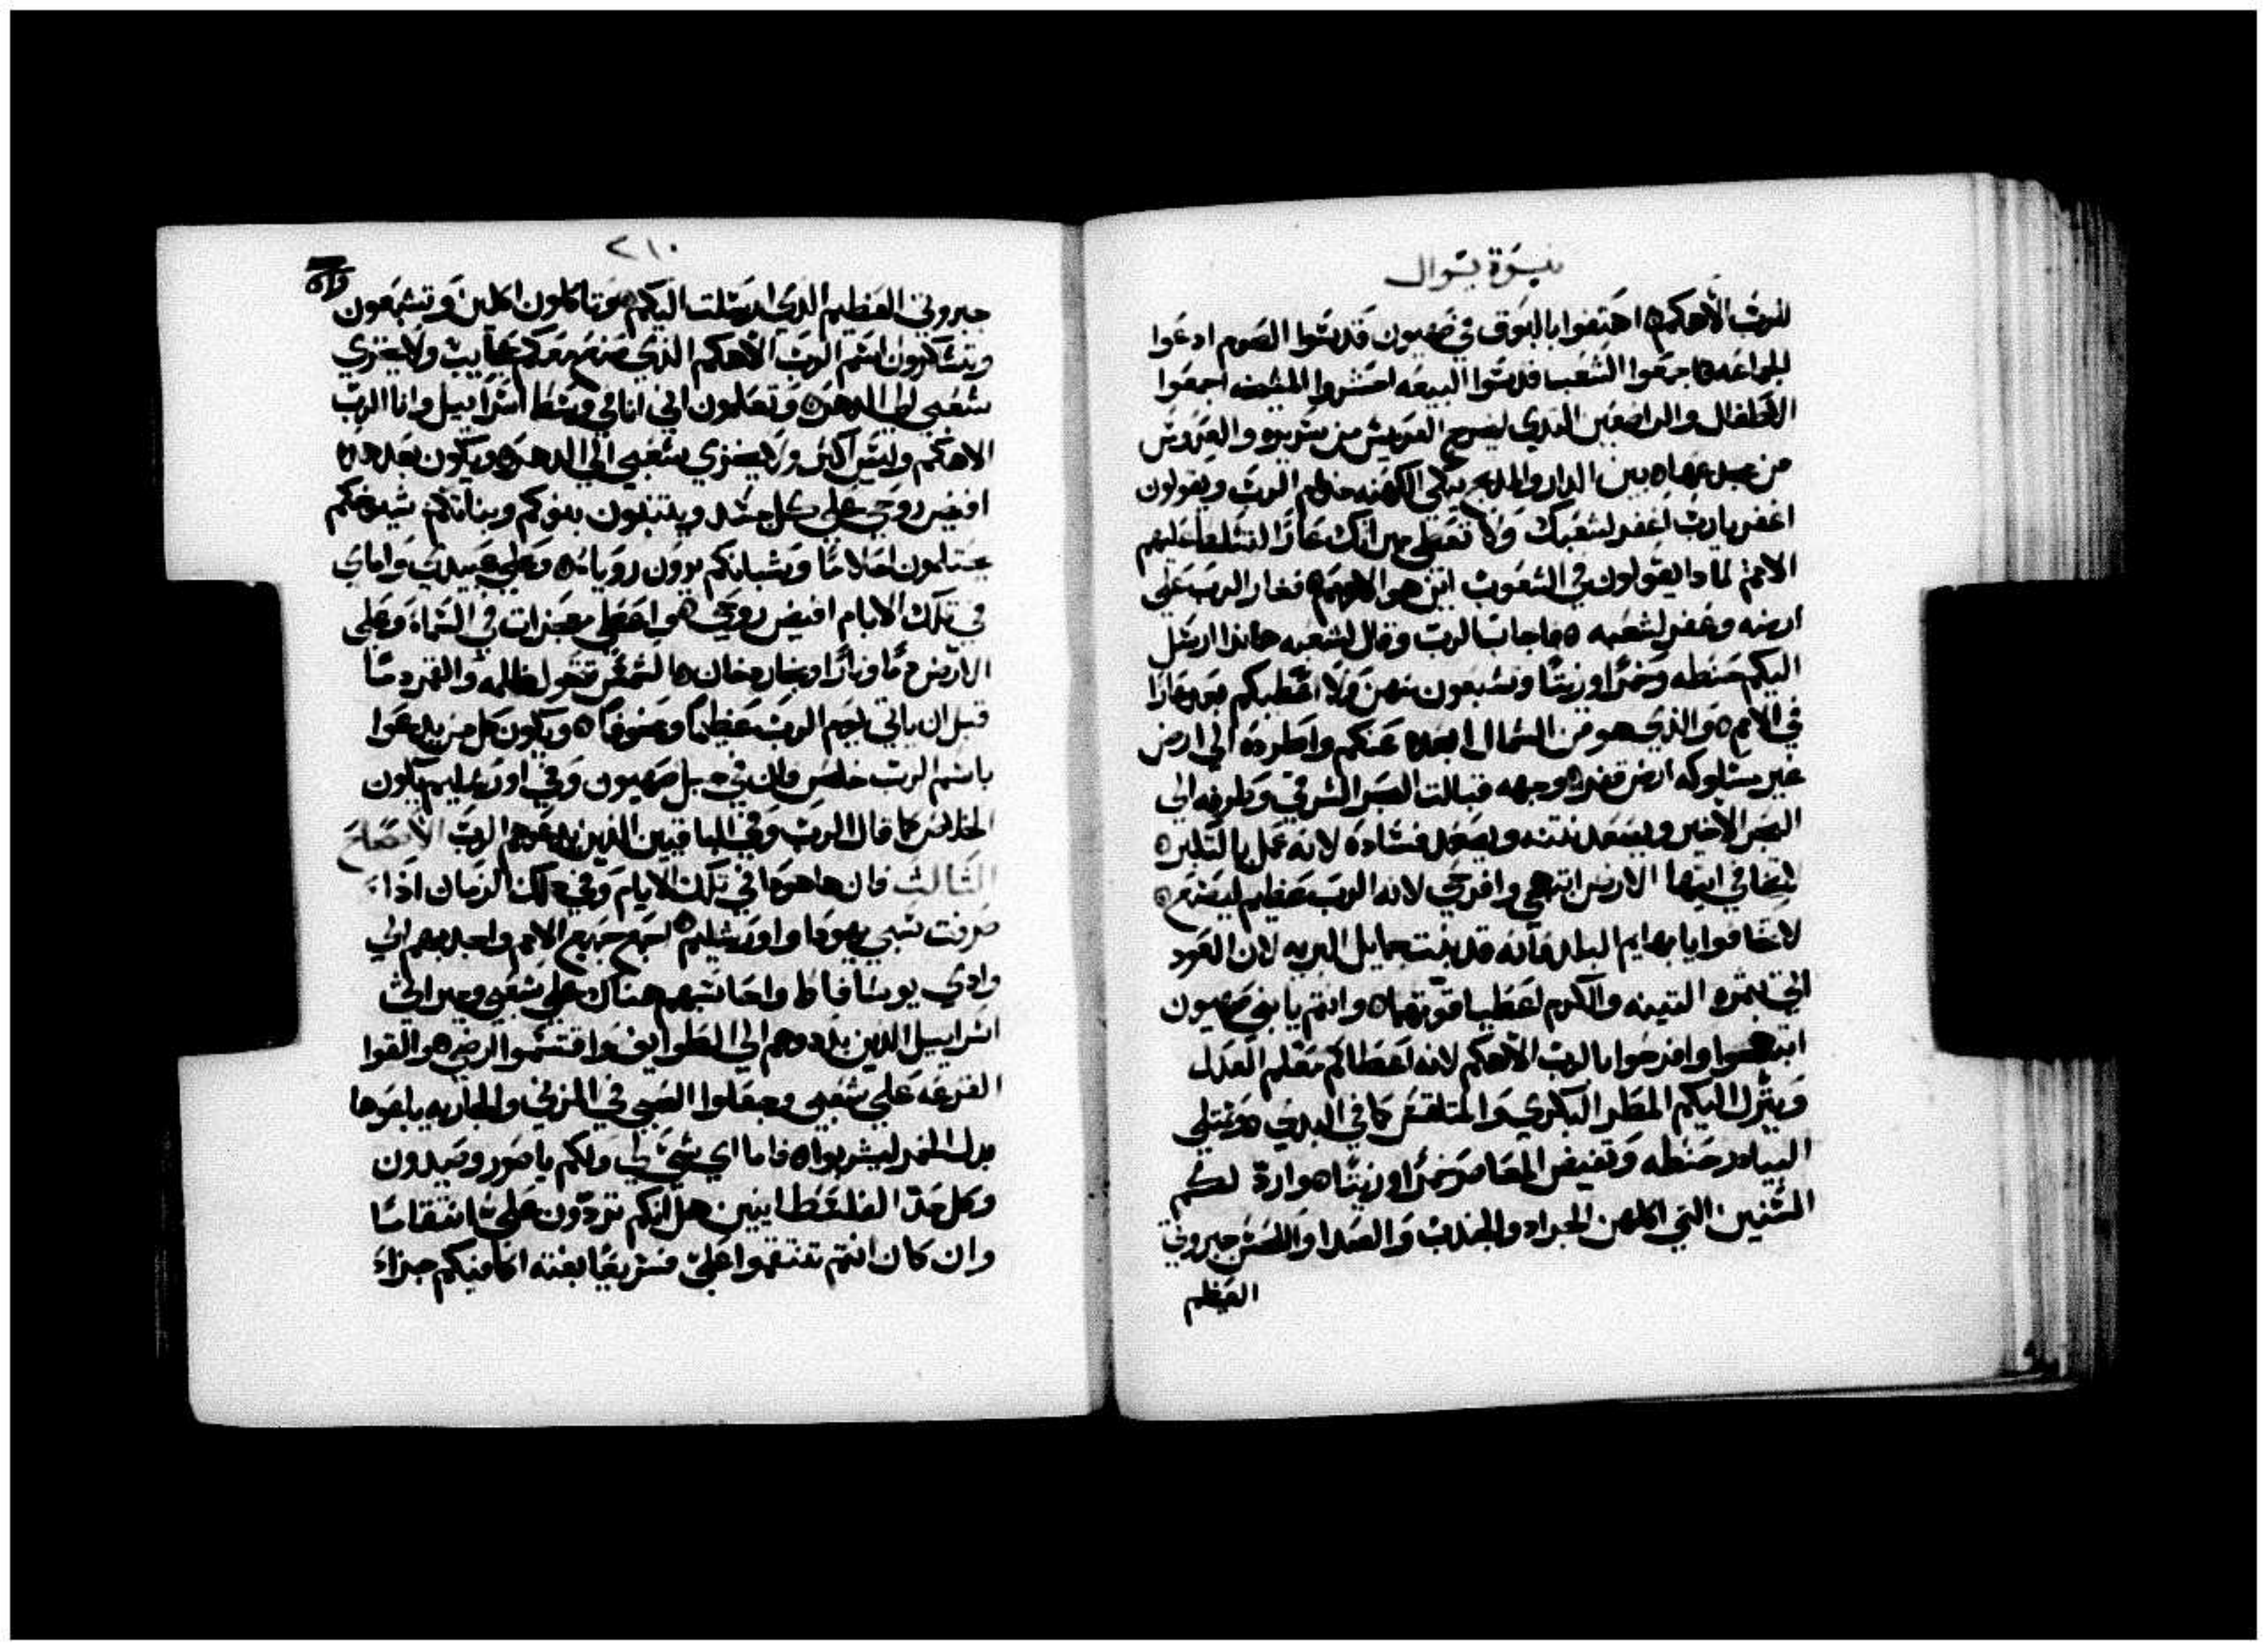 نبوة يوال
للرب الاهكم اهتفوا بالبوق في صهيون قدسوا الصوم ادعوا
الجماعه اجمعوا الشعب قدسوا البيعه احشروا المشيخه اجمعوا
الاطفال والراضعين الثدي ليخرج العريس من سريره والعروس
من بين الدار والمذبح تبكي الكهنه خدام الرب ويقولون
اغفر يارب اغفر لشعبك ولا تعطي ميراثك عارا لتتسلط عليهم
الامم لماذا يقولون في الشعوب اين هو الاههم فغار الرب على
ارضه وغفر لشعبه فاجاب الرب وقال لشعبه هانذا ارسل
اليكم حنطه وخمرا وزيتا وتشبعون منهن ولا اعطيكم عارا
في الامم والذي هو من الشمال ابعده عنكم واطرده الى ارض
غير مسلوكه ارض قفره وجهه قبالت البحر الشرقي وطرفه الى
البحر الاخير ويصعد نتنه ويصعد فساده لانه عمل بالتكبر
لا تخافي ايتها الارض ابتهجي وافرحي لانه الرب عظيم ليصنع
لا تخافوا يا بهايم البلد فانه قد نبت جمايل البريه لان العود
اتى بثمره التينه والكرم اعطيا قوتهما وانتم يا بني صهيون
ابتهجوا وافرحوا بالرب الاهكم لانه اعطاكم معلم العدل
وينزل اليكم المطر البكري والمتلقس كما في البدي وتمتلي
البيادر حنطه وتفيض المعاصر خمرا وزيتا وارد لكم
السنين التي اكلهن الجراد والجندب والصدا والقمص جبروتي
العظيم
٢١٠
جبروتي العظيم الذي ارسلت اليكم وتاكلون اكلين وتشبعون
وتشكرون اسم الرب الاهكم الذي صنع معكم عجايب ولا يخزي
شعبي الى الدهر وتعلمون اني انا في وسط اسراييل وانا الرب
الاهكم وليس اكثر ولا يخزي شعبي الى الدهر ويكون بعد هذا
افيض روحي على كل جسد ويتنبون بنوكم وبناتكم شيوخكم
يحتلمون احلاما وشبانكم يرون رويا وعلى عبيدي واماي
في تلك الايام افيض روحي واعطي معجزات في السماء وعلى
الارض دما ونارا وبخار دخان الشمس تتحول ظلمه والقمر دما
قبل ان ياتي يوم الرب عظيما ومخوفا ويكون كل من يدعوا
باسم الرب خلص فان في جبل صهيون وفي اورشليم يكون
الخلاص كما قال الرب وفي الباقيين الذين يدعوهم الرب الاصحاح
الثالث فان ها هوذا في تلك الايام وفي ذلك الزمان اذا
صرفت سبي يهوذا واورشليم اجمع جميع الامم واجذبهم الى
وادي يوسافاط واحاسبهم هناك على شعبي وميراثي
اسراييل الذين بددوهم الى الطوايف واقتسموا ارضي والقوا
القرعه على شعبي وجعلوا الصبي في الزنى والجاريه باعوها
بدل الخمر ليشربوا فاما اي شي لي ولكم يا صور وصيدون
وكل حد الفلسطانيين هل انكم تردون علي انتقاما
وان كان انتم تنتقموا علي فسريعا بغته اكافيكم جزاء